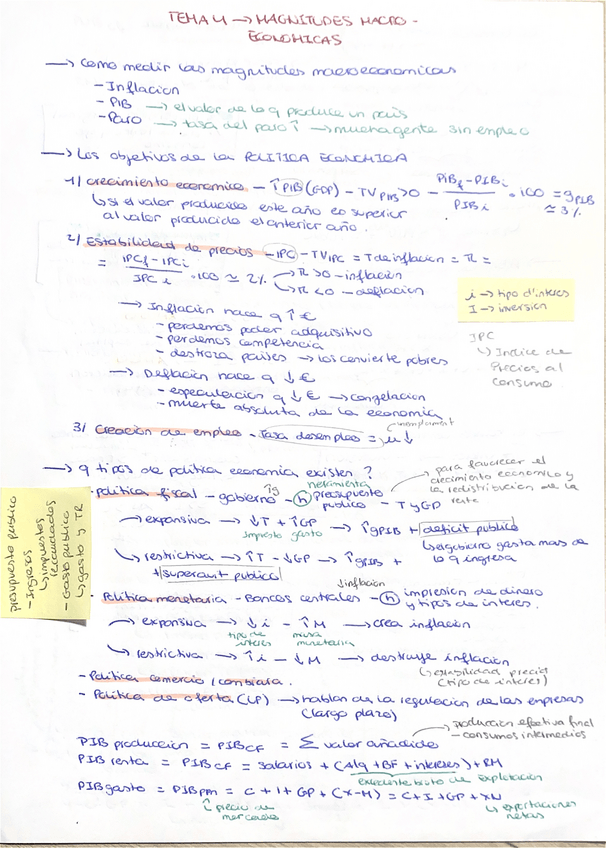 TEMA 4 → MAGNITUDES MACRO-
ECONOMICAS
→ Como medir las magnitudes macroeconomicas
- Inflacion
- PiB → el valor de lo q produce un pais
- Paro → tasa del paro ↑ → mucha gente sin empleo
→ Los objetivos de la POLITICA ECONOMICA
1/ crecimiento economico - ↑PIB (GDP) - TV PIB > 0 - (PiBf - PIBi / PIBi) · 100 = gPIB ≃ 3%
↳ si el valor producido este año es superior
al valor producido el anterior año.
2/ Estabilidad de precios - IPC - TV IPC = T de inflacion = π =
= (IPCf - IPCi / IPC i) · 100 ≃ 2% → π > 0 - inflacion
→ π < 0 - deflacion
i → tipo d'interes
I → inversion
→ Inflacion hace q ↑ €
- perdemos poder adquisitivo
- perdemos competencia
- destroza paises → los convierte pobres
IPC
↳ Indice de
Precios al
consumo
→ Deflacion hace q ↓ €
- especulacion q ↓ € → congelacion
- muerte absoluta de la economia
3/ Creacion de empleo - Tasa desempleo = u ↓
→ q tipos de politica economia existen?
· politica fiscal - gobierno - (h) presupuesto
herramienta
publico - T y GP
para favorecer el
crecimiento economico y
la redistribucion de la
renta
→ expansiva → ↓T + ↑GP → ↑gPIB + deficit publico
impuesto gasto
↳ el gobierno gasta mas de
lo q ingresa
↳ restrictiva → ↑T - ↓GP → ↑gPIB +
+ superavit publico
presupuesto publico
- Ingresos
↳ impuestos
recaudados
- Gasto publico
↳ gasto y TR
↓inflacion
· Politica monetaria - Bancos centrales - (h) impresion de dinero
y tipos de interes.
→ expansiva → ↓i - ↑M → crea inflación
tipo de interes
masa monetaria
↳ restrictiva → ↑i - ↓M → destruye inflación
↳ estabilidad precio
(tipo de interes)
- Politica comercio / cambiaria.
- Politica de oferta (LP) → hablan de la regulacion de las empresas
(largo plazo)
produccion efectiva final
- consumos intermedios
PIB produccion = PIB CF = Σ valor añadidos
PIB renta = PIB CF = salarios + (Alq + BF + intereses) + RM
excedente bruto de explotacion
PIB gasto = PIB pm = C + I + GP + (X-M) = C + I + GP + XN
↑ precio de
mercado
↳ exportaciones
netas